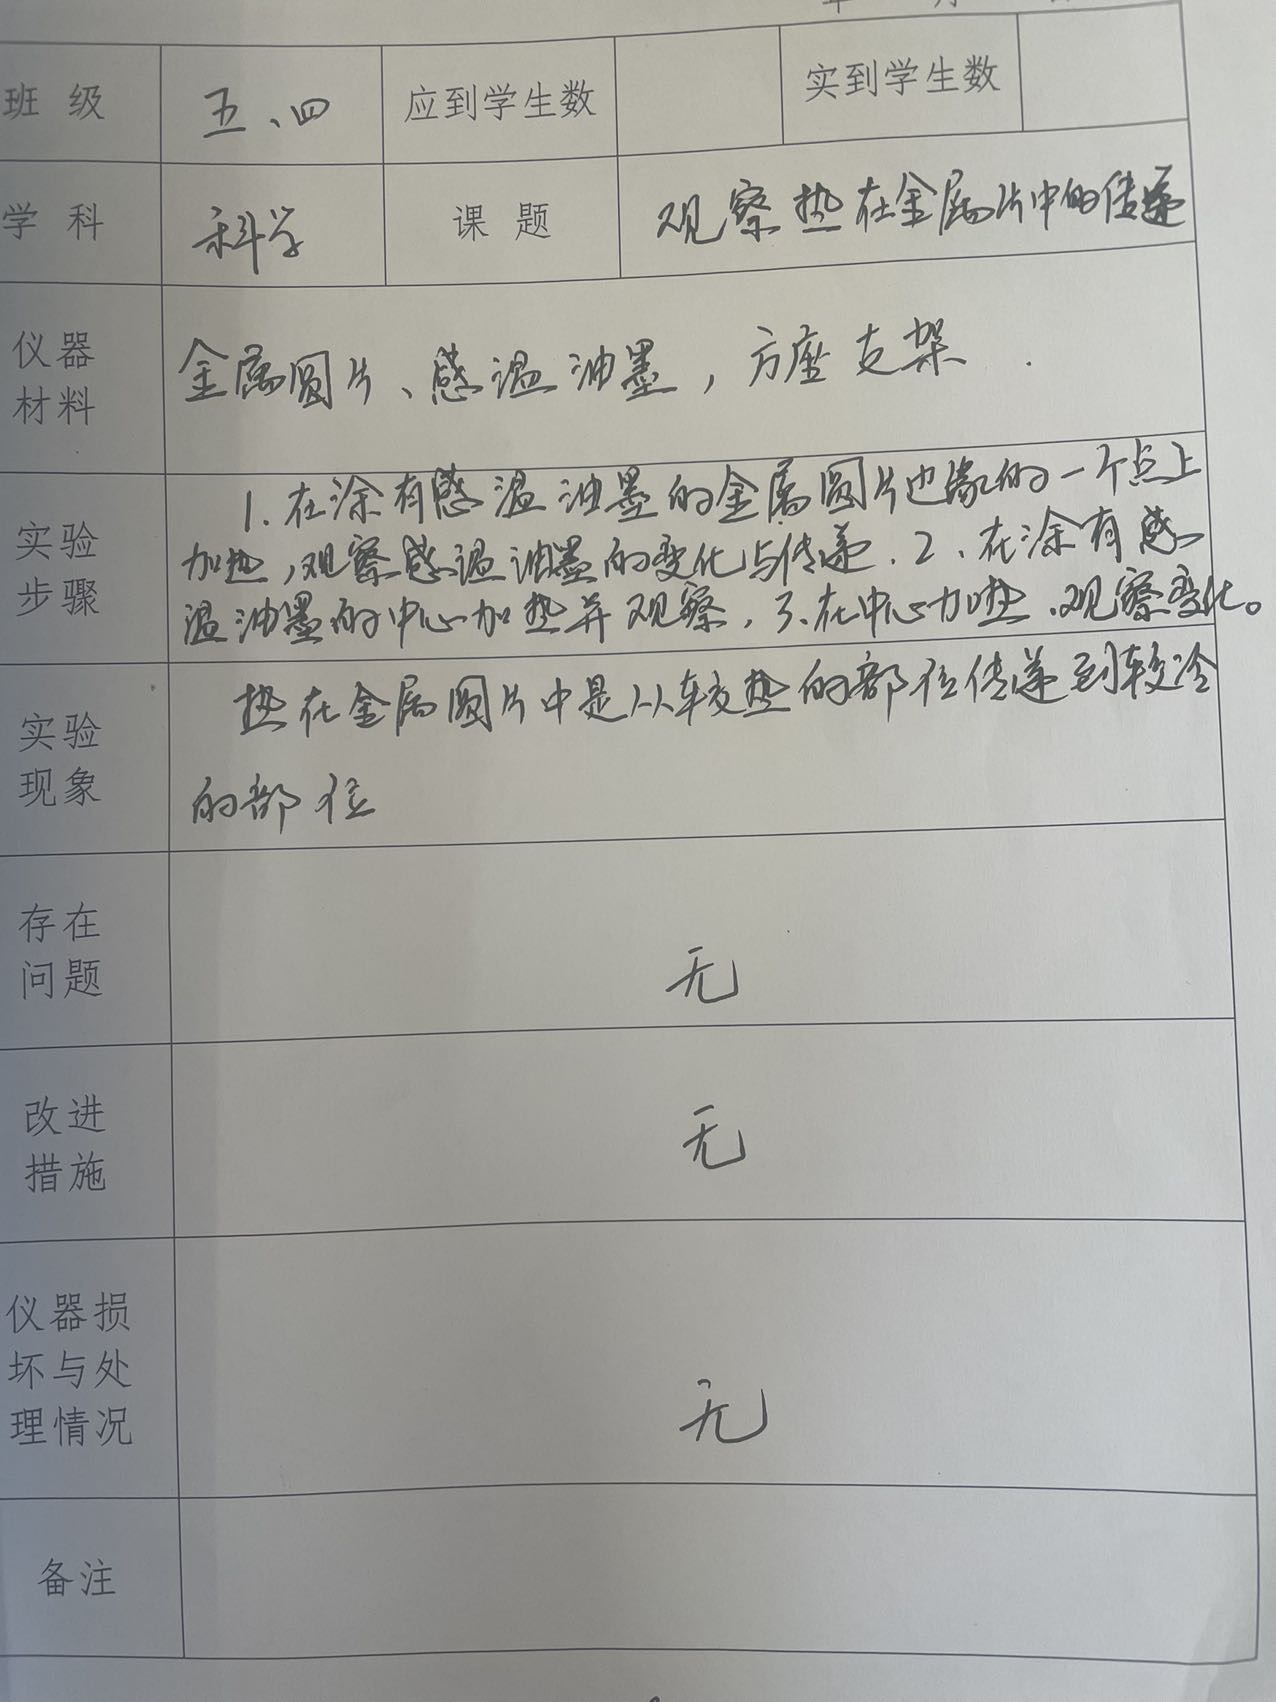 年 月
班 级 五、四 应到学生数 实到学生数
学 科 科学 课 题 观察热在金属片中的传递
仪器
材料
金属圆片、感温油墨，方座支架.
实验
步骤
1. 在涂有感温油墨的金属圆片边缘的一个点上
加热，观察感温油墨的变化与传递. 2、在涂有感
温油墨的中心加热并观察, 3、在中心加热.观察变化。
实验
现象
热在金属圆片中是从较热的部位传递到较冷
的部位
存在
问题
无
改进
措施
无
仪器损
坏与处
理情况
无
备注